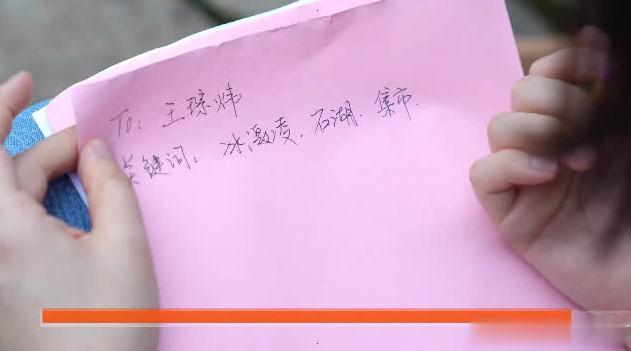 To: 王琼炜
关键词: 冰激凌. 石湖. 集市.